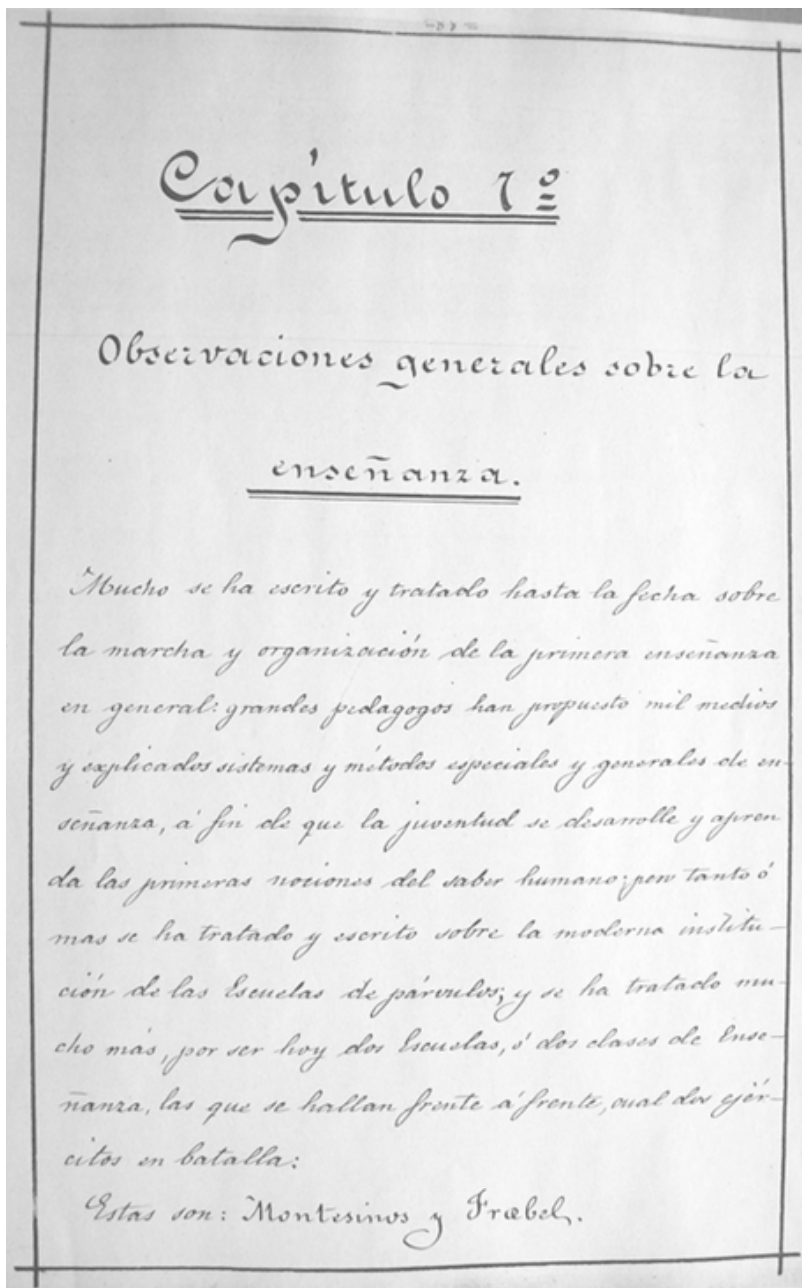 Capítulo 1º
Observaciones generales sobre la
enseñanza.
Mucho se ha escrito y tratado hasta la fecha sobre
la marcha y organización de la primera enseñanza
en general: grandes pedagogos han propuesto mil medios
y explicados sistemas y métodos especiales y generales de en-
señanza, á fin de que la juventud se desarrolle y apren
da las primeras nociones del saber humano; pero tanto ó
mas se ha tratado y escrito sobre la moderna institu-
ción de las Escuelas de párvulos; y se ha tratado mu-
cho más, por ser hoy dos Escuelas, ó dos clases de Ense-
ñanza, las que se hallan frente á frente, cual dos ejér-
citos en batalla:
Estas son: Montesinos y Frœbel.